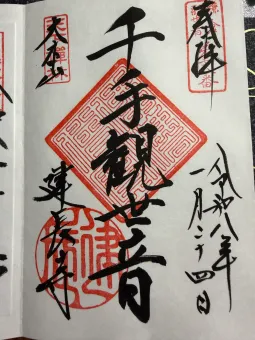 奉拝
令和八年
一月二十四日
千手觀世音
大本山
建長寺